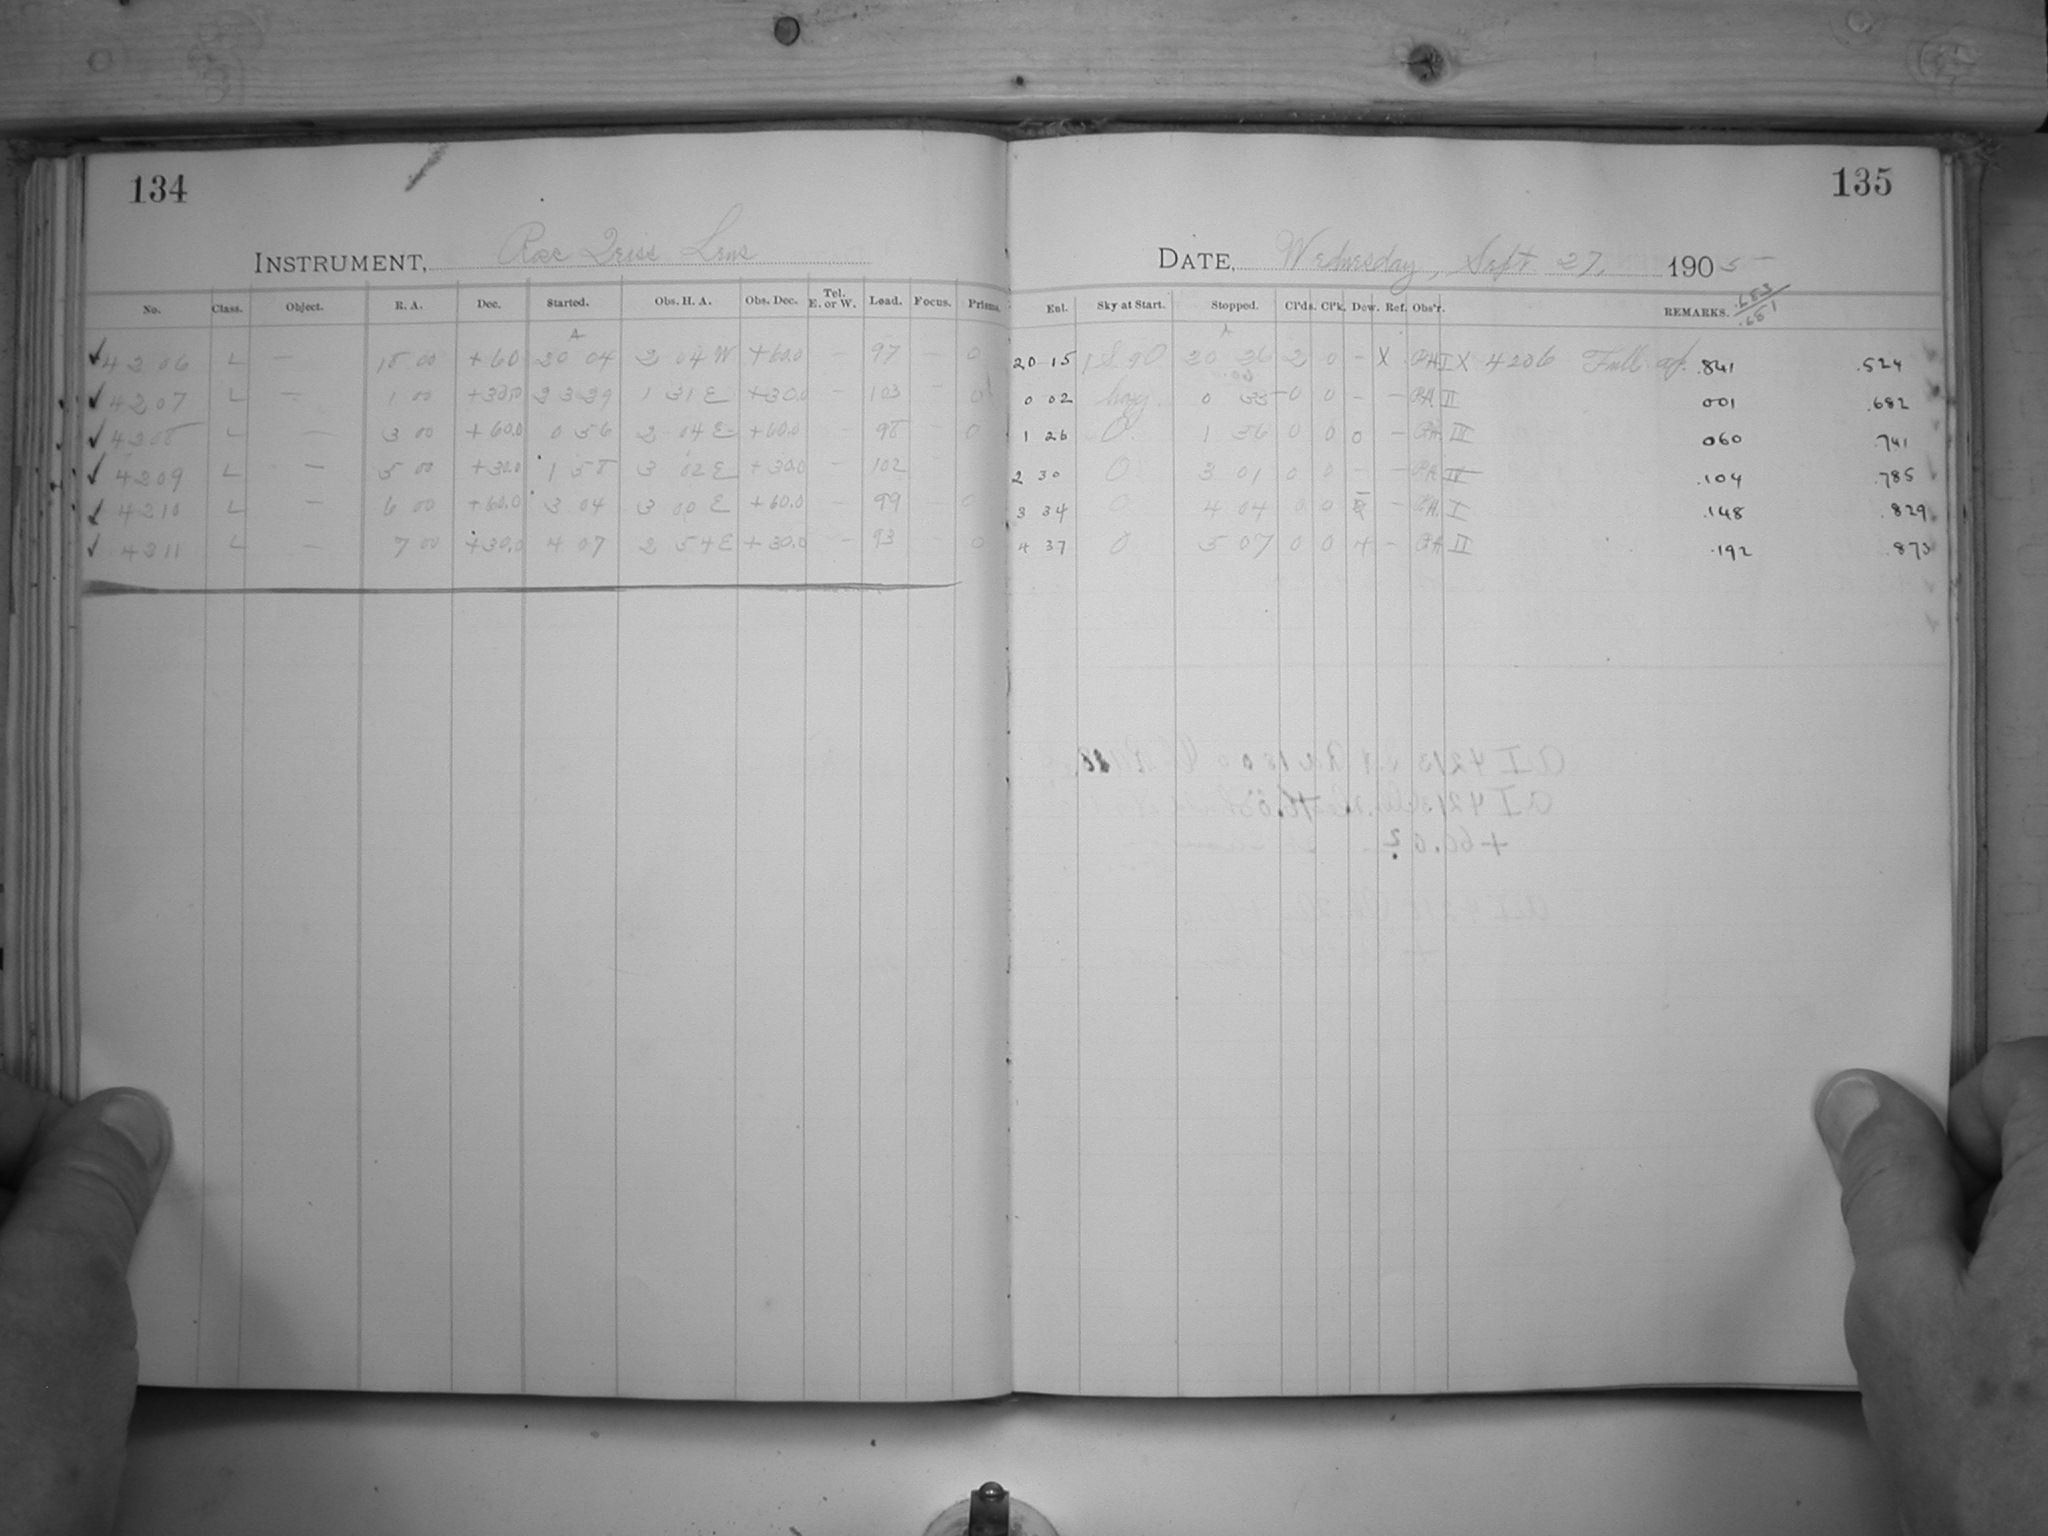 134
INSTRUMENT, Lens
No. Class. Object. R. A. Dec. Started. Obs. H. A. Obs. Dec. Tel. E. or W. Load. Focus. Prisms.
A
4206 L — 18 00 +60 20 04 2 04 W +60.0 – 97 – 0
4207 L — 1 00 +30.0 23 39 1 31 E +30.0 – 103 – 0
4208 L — 3 00 +60.0 0 56 2 04 E +60.0 – 98 – 0
4209 L — 5 00 +30.0 1 58 3 02 E +30.0 – 102
4210 L — 6 00 +60.0 3 04 3 00 E +60.0 – 99 – 0
4211 L — 7 00 +30.0 4 07 2 54 E +30.0 – 93 – 0
135
DATE, Wednesday, Sept 27, 1905
Ent. Sky at Start. Stopped. Cl'ds. Cl'k. Dew. Ref. Obs'r. REMARKS. .683 .681
A
20 15 20 26 2 0 – X I X 4206 Full ap. .841 .524
0 02 hazy 0 33 0 0 – – II 001 .682
1 26 0 1 56 0 0 0 – III 060 .741
2 30 0 3 01 0 0 – – IV .104 .785
3 34 0 4 04 0 0 – I .148 .829
4 37 0 5 07 0 0 + – II .192 .873